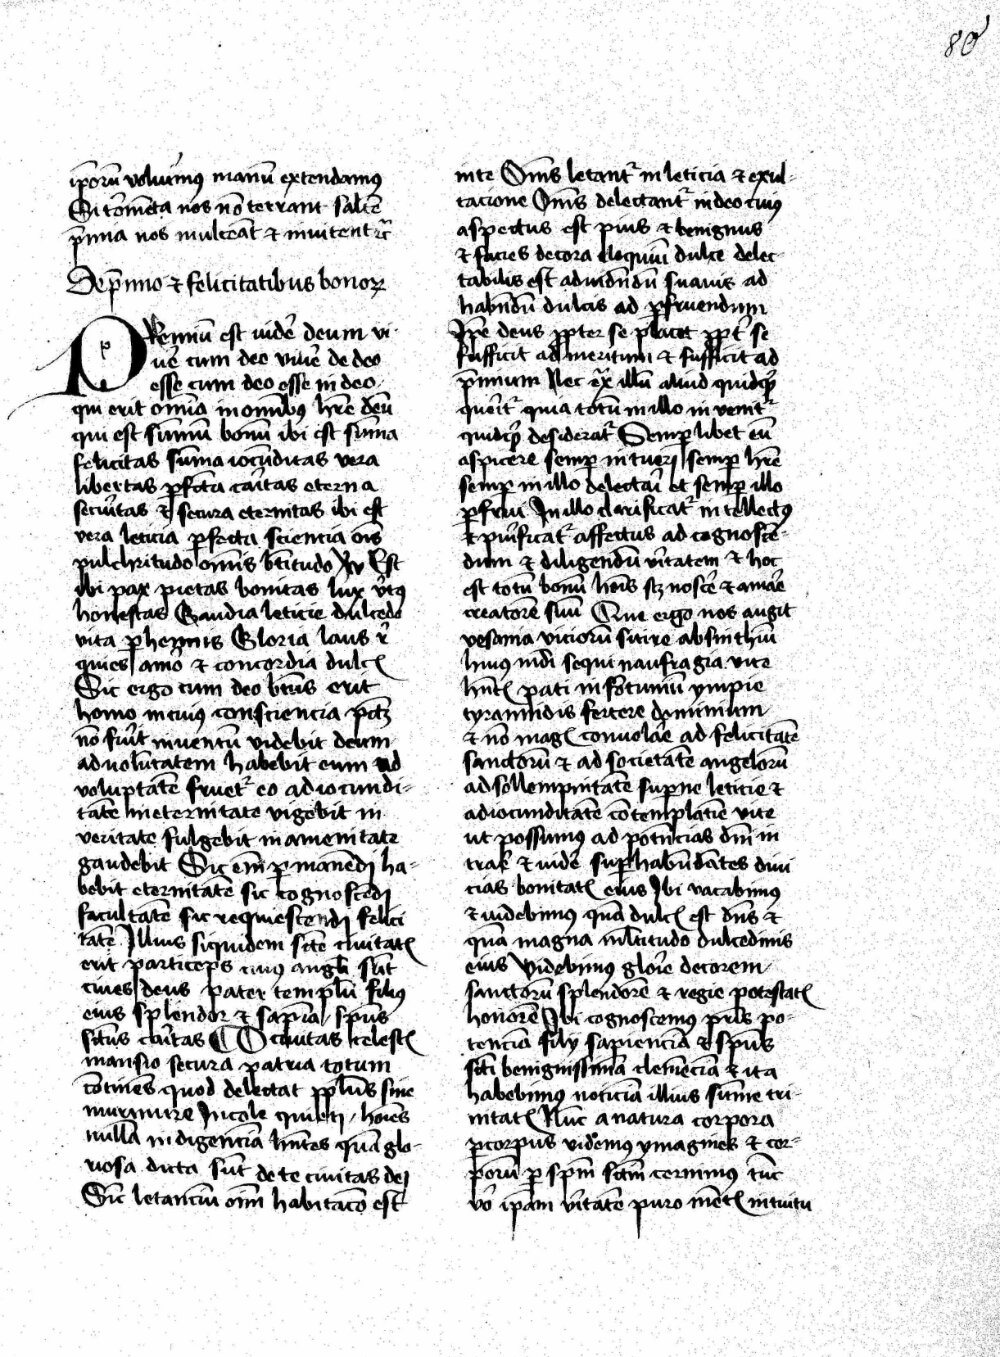 80
ip̄orū voluim̄us manū extendamus
Si tōmēta nos nō terrant saltē
p̄mia nos mulceāt ⁊ invitent ꝛc̄
De p̄mio ⁊ felicitatibus bonoꝝ
PRemiū est videꝰ deum vi
ūe cum deo viuē de deo
esse cum deo esse in deo
qui erit om̄ia in om̄ibꝰ hr̄e deū
qui est sūmū bonū ibi est sūma
felicitas sūma iocūditas vera
libertas ꝑfcā caritas eterna
secūitas ⁊ secura eternitas ibi est
vera leticia ꝑfecta sciencia oīs
pulchritudo om̄is btītudo Est
ibi pax pietas bonitas lux v̄tus
honestas Gaudia leticie dulcedo
vita ꝑhennis Gloria laus r̄
quies amō ⁊ concordia dulcꝭ
Sic ergo cum deo btūs erit
homo in cuiꝰ consciencia pctm̄
nō fūit inventū videbit deum
ad volūtatem habebit eum ad
voluptatē fruetᷣ eo ad iocundi-
tatē in eternitate vigebit in
veritate fulgebit in amenitate
gaudebit Sic em̄ ꝑmanedi ha-
bebit eternitatē sic cognoscedi
facultatē sic requiescendi felici
tatē Illius siquidem scē civitatꝭ
erit particeps cuiꝰ angli sūt
cives deus pater templū filius
eius splendor ⁊ sapīa spūs
sctūs cāitas ¶ O civitas celestꝭ
mansio secura patria totum
cōtinēs quod delectat ppl̄us sine
murmure Incole quieti hoīes
nullā indigenciā hn̄tes quā glo-
riosa dicta sūt de te civitas dei
Sic̄ letanciū oīm habitacō est
in te Om̄s letantᷣ in leticia ⁊ exul-
tacione Om̄s delectantᷣ in deo cuiꝰ
aspectus est pius ⁊ benignus
⁊ facies decora eloquiū dulce delec
tabilis est ad vidēdū suavis ad
habēdū dulcis ad ꝑfruendum
Ip̄e deus ꝓpter se placet ꝓpt̄ se
sufficit ad meritum ⁊ sufficit ad
p̄mium Nec ex̄ illū aliud quidꝙ
queritᷣ quia totū in illo invenitᷣ
quidꝙ desideratᷣ Semꝑ libet eū
aspicere semꝑ intueri semꝑ hr̄e
semꝑ in illo delectāi et semꝑ illo
ꝑfrui In illo clarificatᷣ intellectꝰ
⁊ purificatᷣ affectus ad cognoscē-
dum ⁊ diligendū v̄itatem ⁊ hoc
est totū bonū hoīs scꝫ noscē ⁊ amāe
creatorē suū Que ergo nos angit
vesania viciorū sitire absinthiū
huiꝰ mūdi sequi naufragia vite
hn̄tꝭ pati infōtuniū ympie
tyrannidis ferrere dominium
⁊ nō magꝭ convolāe ad felicitatē
sanctorū ⁊ ad societatē angelorū
ad sollempnitatē suꝑne leticie ⁊
ad iocunditatē cōtemplatie vite
ut possumus ad potn̄cias dm̄ in
trar̄ ⁊ videꝰ suꝑhabūdātes divi
cias bonitatꝭ eius Ibi vacabimꝰ
⁊ videbimꝰ quā dulcꝭ est dn̄s ⁊
quā magna mltitudo dulcedinis
eius Videbimus glorie decorem
sanctorū splendorē ⁊ regie potestatꝭ
honorē Ibi cognoscemus pris po-
tenciā filij sapienciā ⁊ spūs
scti benignissimā clemēciā ⁊ ita
habebimus noticiā illius sūme tri-
nitatꝭ Nūc a natura corpora
ꝑ corpus videmus ymagines ⁊ cor-
porū ꝑ spm̄ sctm̄ cernimus tūc
vō ip̄am v̄itatē puro mētꝭ intuitu